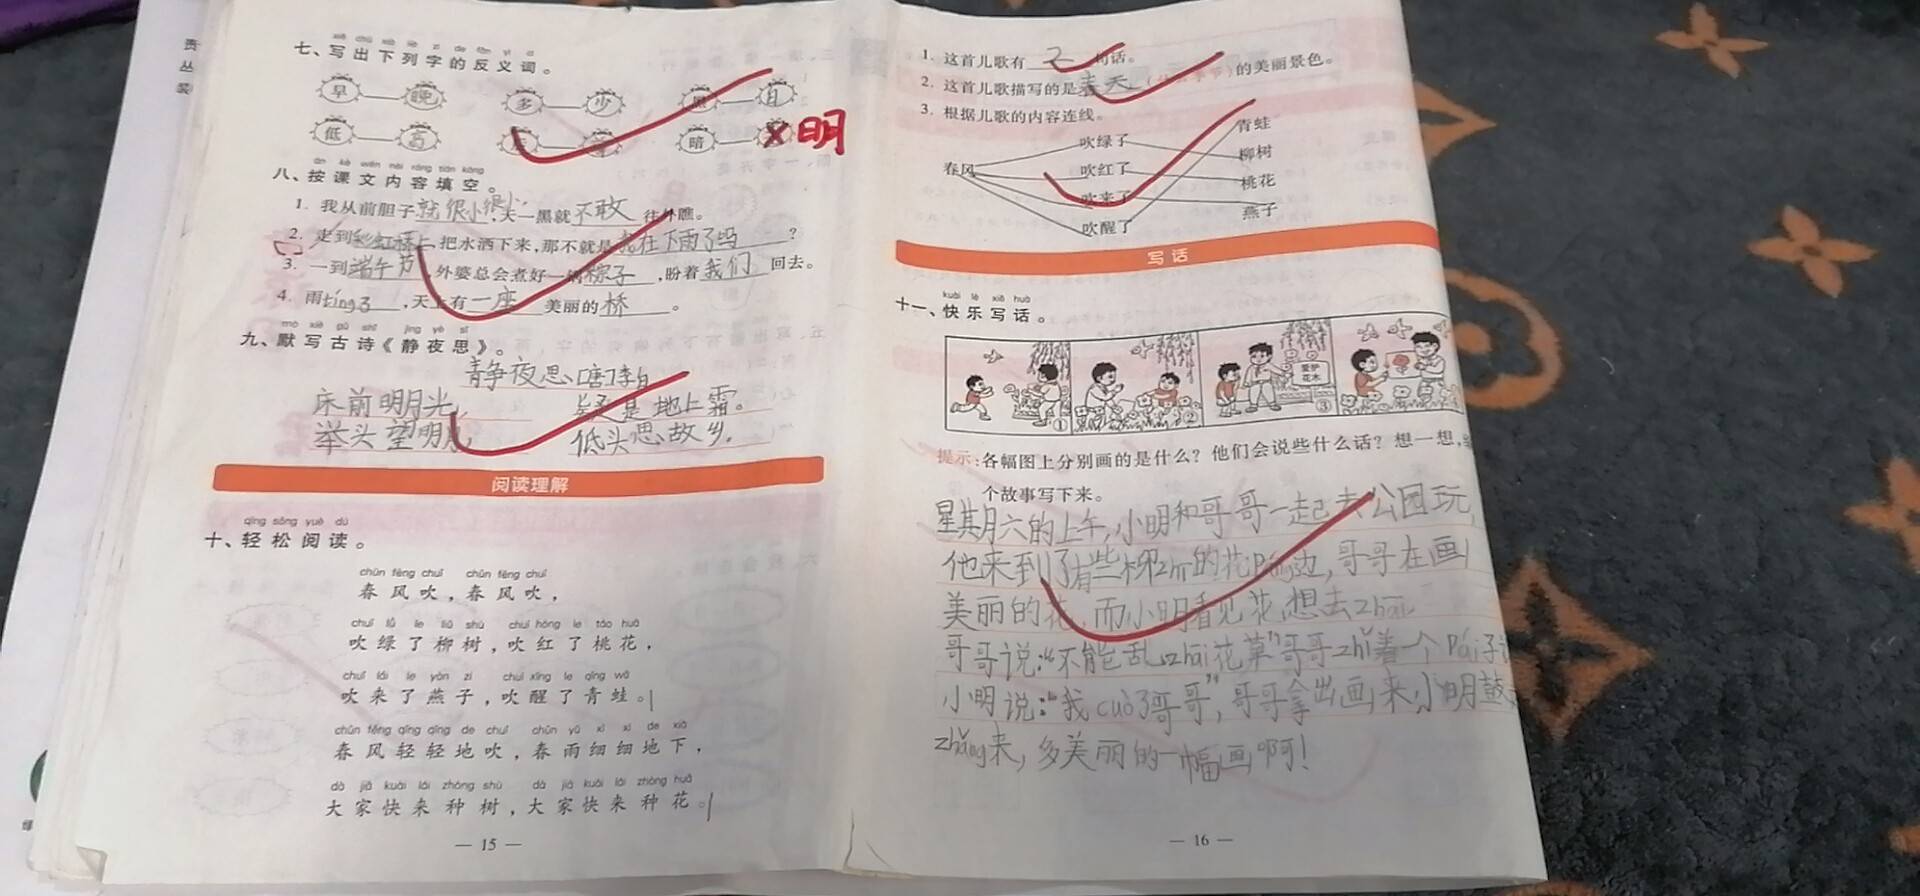 责
丛
装
xiě chū xià liè zì de fǎn yì cí
七、写出下列字的反义词。
早 晚 多 少 黑 白
低 高 暗 明
àn kè wén nèi róng tián kòng
八、按课文内容填空。
1. 我从前胆子就很小很小,天一黑就不敢往外瞧。
2. 走到彩虹桥上,把水洒下来,那不就是我在下雨了吗?
3. 一到端午节,外婆总会煮好一锅粽子,盼着我们回去。
4. 雨tíng了,天上有一座美丽的桥。
mò xiě gǔ shī jìng yè sī
九、默写古诗《静夜思》。
静夜思[唐]李白
床前明月光, 疑是地上霜。
举头望明月, 低头思故乡。
阅读理解
qīng sōng yuè dú
十、轻松阅读。
chūn fēng chuī chūn fēng chuī
春风吹,春风吹,
chuī lǜ le liǔ shù chuī hóng le táo huā
吹绿了柳树,吹红了桃花,
chuī lái le yàn zi chuī xǐng le qīng wā
吹来了燕子,吹醒了青蛙。
chūn fēng qīng qīng de chuī chūn yǔ xì xì de xià
春风轻轻地吹,春雨细细地下,
dà jiā kuài lái zhòng shù dà jiā kuài lái zhòng huā
大家快来种树,大家快来种花。
— 15 —
1. 这首儿歌有 2 句话。
2. 这首儿歌描写的是春天的美丽景色。
3. 根据儿歌的内容连线。
春风
吹绿了 青蛙
吹红了 柳树
吹来了 桃花
吹醒了 燕子
写话
kuài lè xiě huà
十一、快乐写话。
① ② 爱护花木 ③
提示:各幅图上分别画的是什么?他们会说些什么话?想一想,
个故事写下来。
星期六的上午,小明和哥哥一起去公园玩,
他来到了有些栅zhī的花píng边,哥哥在画
美丽的花,而小明看见花,想去zhāi
哥哥说:“不能乱zhāi花草”哥哥zhǐ着一个pái子
小明说:“我cuò了哥哥”,哥哥拿出画来,小明鼓
zhǎng来,多美丽的一幅画啊!
— 16 —